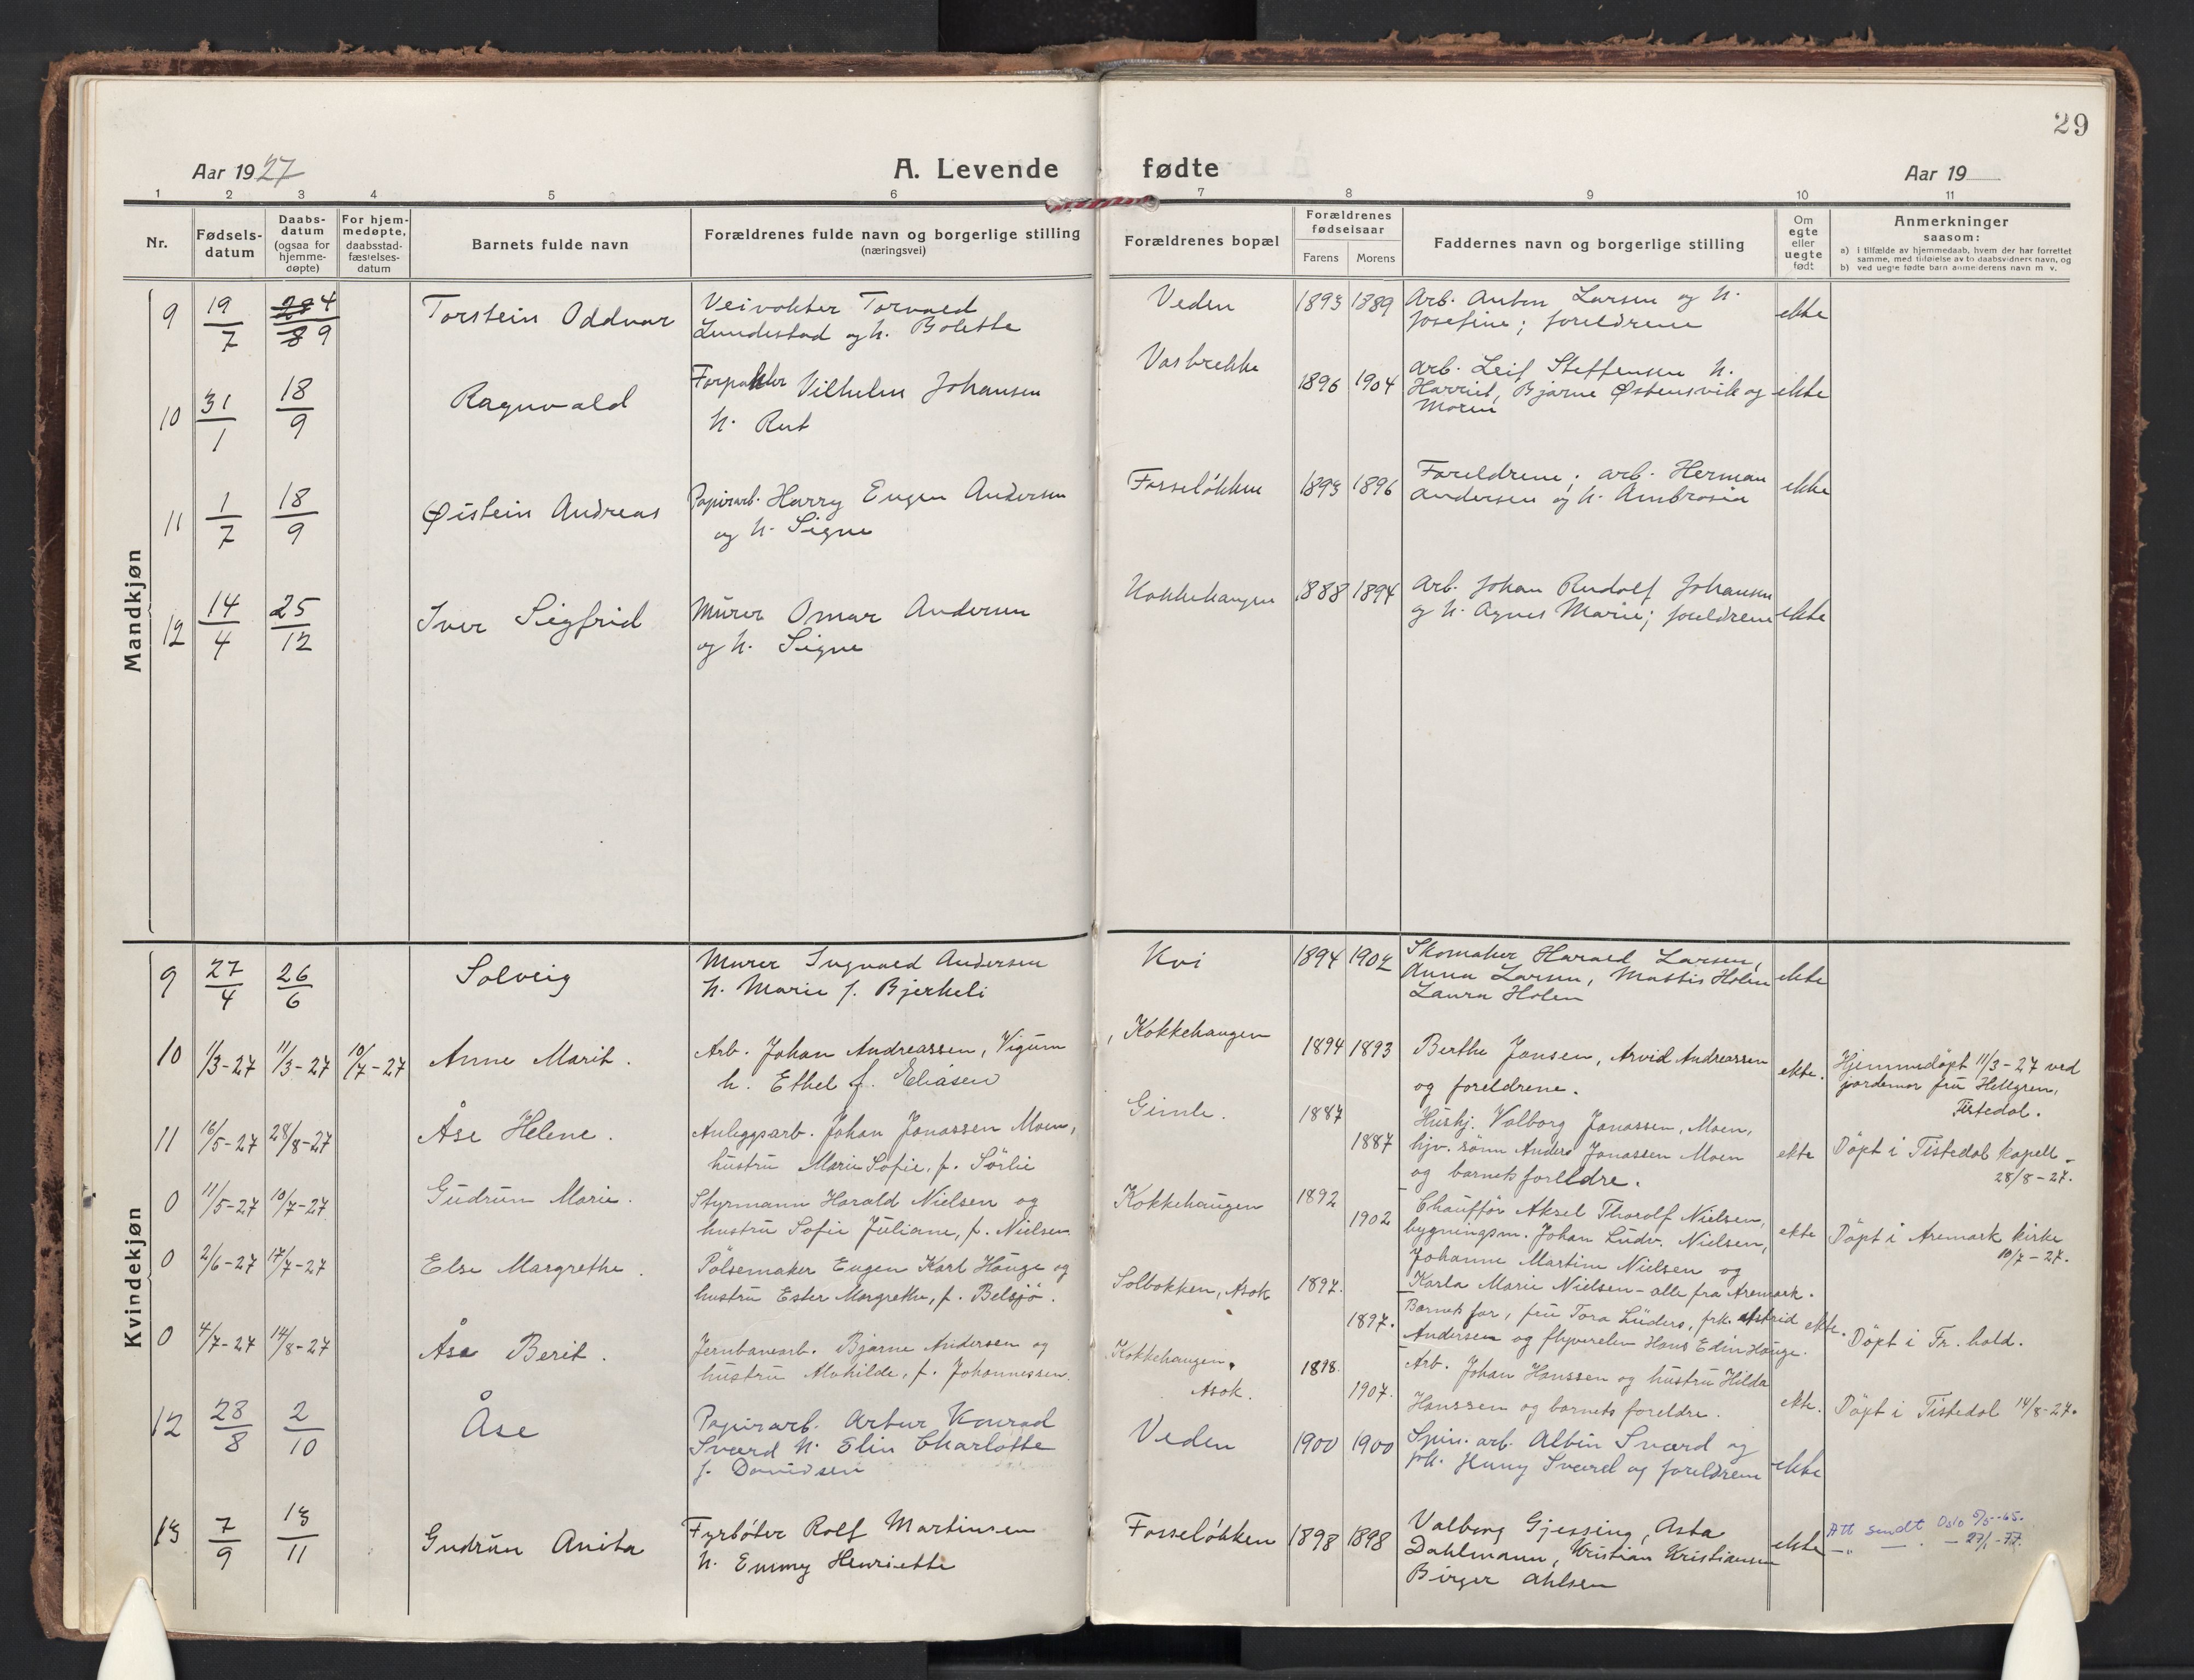 29
Aar 1927
A. Levende fødte
Aar 19
1 2 3 4 5 6 7 8 9 10 11
Nr.
Fødsels-
datum
Daabs-
datum
(ogsaa for
hjemme-
døpte)
For hjem-
medøpte,
daabsstad-
fæstelses-
datum
Barnets fulde navn
Forældrenes fulde navn og borgerlige stilling
(næringsvei)
Forældrenes bopæl
Forældrenes
fødselsaar
Farens Morens
Faddernes navn og borgerlige stilling
Om
egte
eller
uegte
født
Anmerkninger
saasom:
a) i tilfælde av hjemmedaab, hvem der har forrettet
samme, med tilføielse av to daabsvidners navn, og
b) ved uegte fødte barn anmelderens navn m. v.
Mandkjøn
9 19/7 4/9 Torstein Oddvar
Veivokter Torvald
Lundestad og h. Bolette
Veden 1893 1889
Arb. Anton Larsen og h.
Josefine; foreldrene
ekte
10 31/1 18/9 Ragnvald
Forpakter Vilhelm Johansen
h. Rut
Vasbrekke 1896 1904
Arb. Leif Steffensen h.
Harriet, Bjarne Østensvik og
Moren
ekte
11 1/7 18/9 Øistein Andreas
Papirarb. Harry Eugen Andersen
og h. Signe
Fosseløkken 1893 1896
Foreldrene; arb. Herman
Andersen og h. Ambrosia
ekte
12 14/4 25/12 Iver Sigfrid
Murer Omar Andersen
og h. Signe
Kokkehaugen 1888 1894
Arb. Johan Rudolf Johansen
og h. Agnes Marie; foreldrene
ekte
Kvindekjøn
9 27/4 26/6 Solveig
Murer Ingvald Andersen
h. Marie f. Bjerkeli
Kvi 1894 1902
Skomaker Harald Larsen,
Anna Larsen, Mattis Holen
Laura Holen
ekte
10 11/3-27 11/3-27 10/7-27 Anne Marit.
Arb. Johan Andreassen, Vigum
h. Ethel f. Eliasen
Kokkehaugen 1894 1893
Berthe Jansen, Arvid Andreassen
og foreldrene.
ekte.
Hjemmedøpt 11/3-27 ved
jordemor fru Hellgren,
Tistedal.
11 16/5-27 28/8-27 Åse Helene.
Anleggsarb. Johan Jonassen Moen,
hustru Marie Sofie, f. Sørlie
Gimle. 1887 1887
Hushj. Valborg Jonassen, Moen,
hjv. sønn Anders Jonassen Moen
og barnets forelldre.
ekte
Døpt i Tistedal kapell
28/8-27.
0 11/5-27 10/7-27 Gudrun Marie.
Styrmann Harald Nielsen og
hustru Sofie Juliane, f. Nielsen
Kokkehaugen 1892 1902
Chauffør Aksel Thorolf Nielsen,
bygningsm. Johan Ludv. Nielsen,
Johanne Martine Nielsen og
Karla Marie Nielsen - alle fra Aremark.
ekte
Døpt i Aremark kirke
10/7-27.
0 2/6-27 17/7-27 Else Margrethe.
Pølsemaker Eugen Karl Hauge og
hustru Ester Margrethe, f. Belsjø.
Solbakken, Asak 1897. 1897.
Barnets far, fru Tora Lüders, frk. Astrid
Andersen og flyverelev Hans Edin Hauge.
ekte.
Døpt i Fr. hald.
0 4/7-27 14/8-27 Åse Berit.
Jernbanearb. Bjarne Andersen og
hustru Mathilde, f. Johannessen.
Kokkehaugen,
Asak. 1898. 1907.
Arb. Johan Hanssen og hustru Hilda
Hanssen og barnets foreldre.
ekte.
Døpt i Tistedal 14/8-27.
12 28/8 2/10 Åse
Papirarb. Artur Konrad
Sværd h. Elin Charlotte
f. Davidsen
Veden 1900 1900
Spin. arb. Albin Sværd og
frk. Sværd og foreldrene
ekte
13 7/9 13/11 Gudrun Anita
Fyrbøter Rolf Martinsen
h. Emmy Henriette
Fosseløkken 1898 1898
Valborg Gjessing, Asta
Dahlmann, Kristian Kristiansen
Birger Ahlsen
ekte
Att sendt Oslo 5/5-65.
-"- - - 27/1-77.